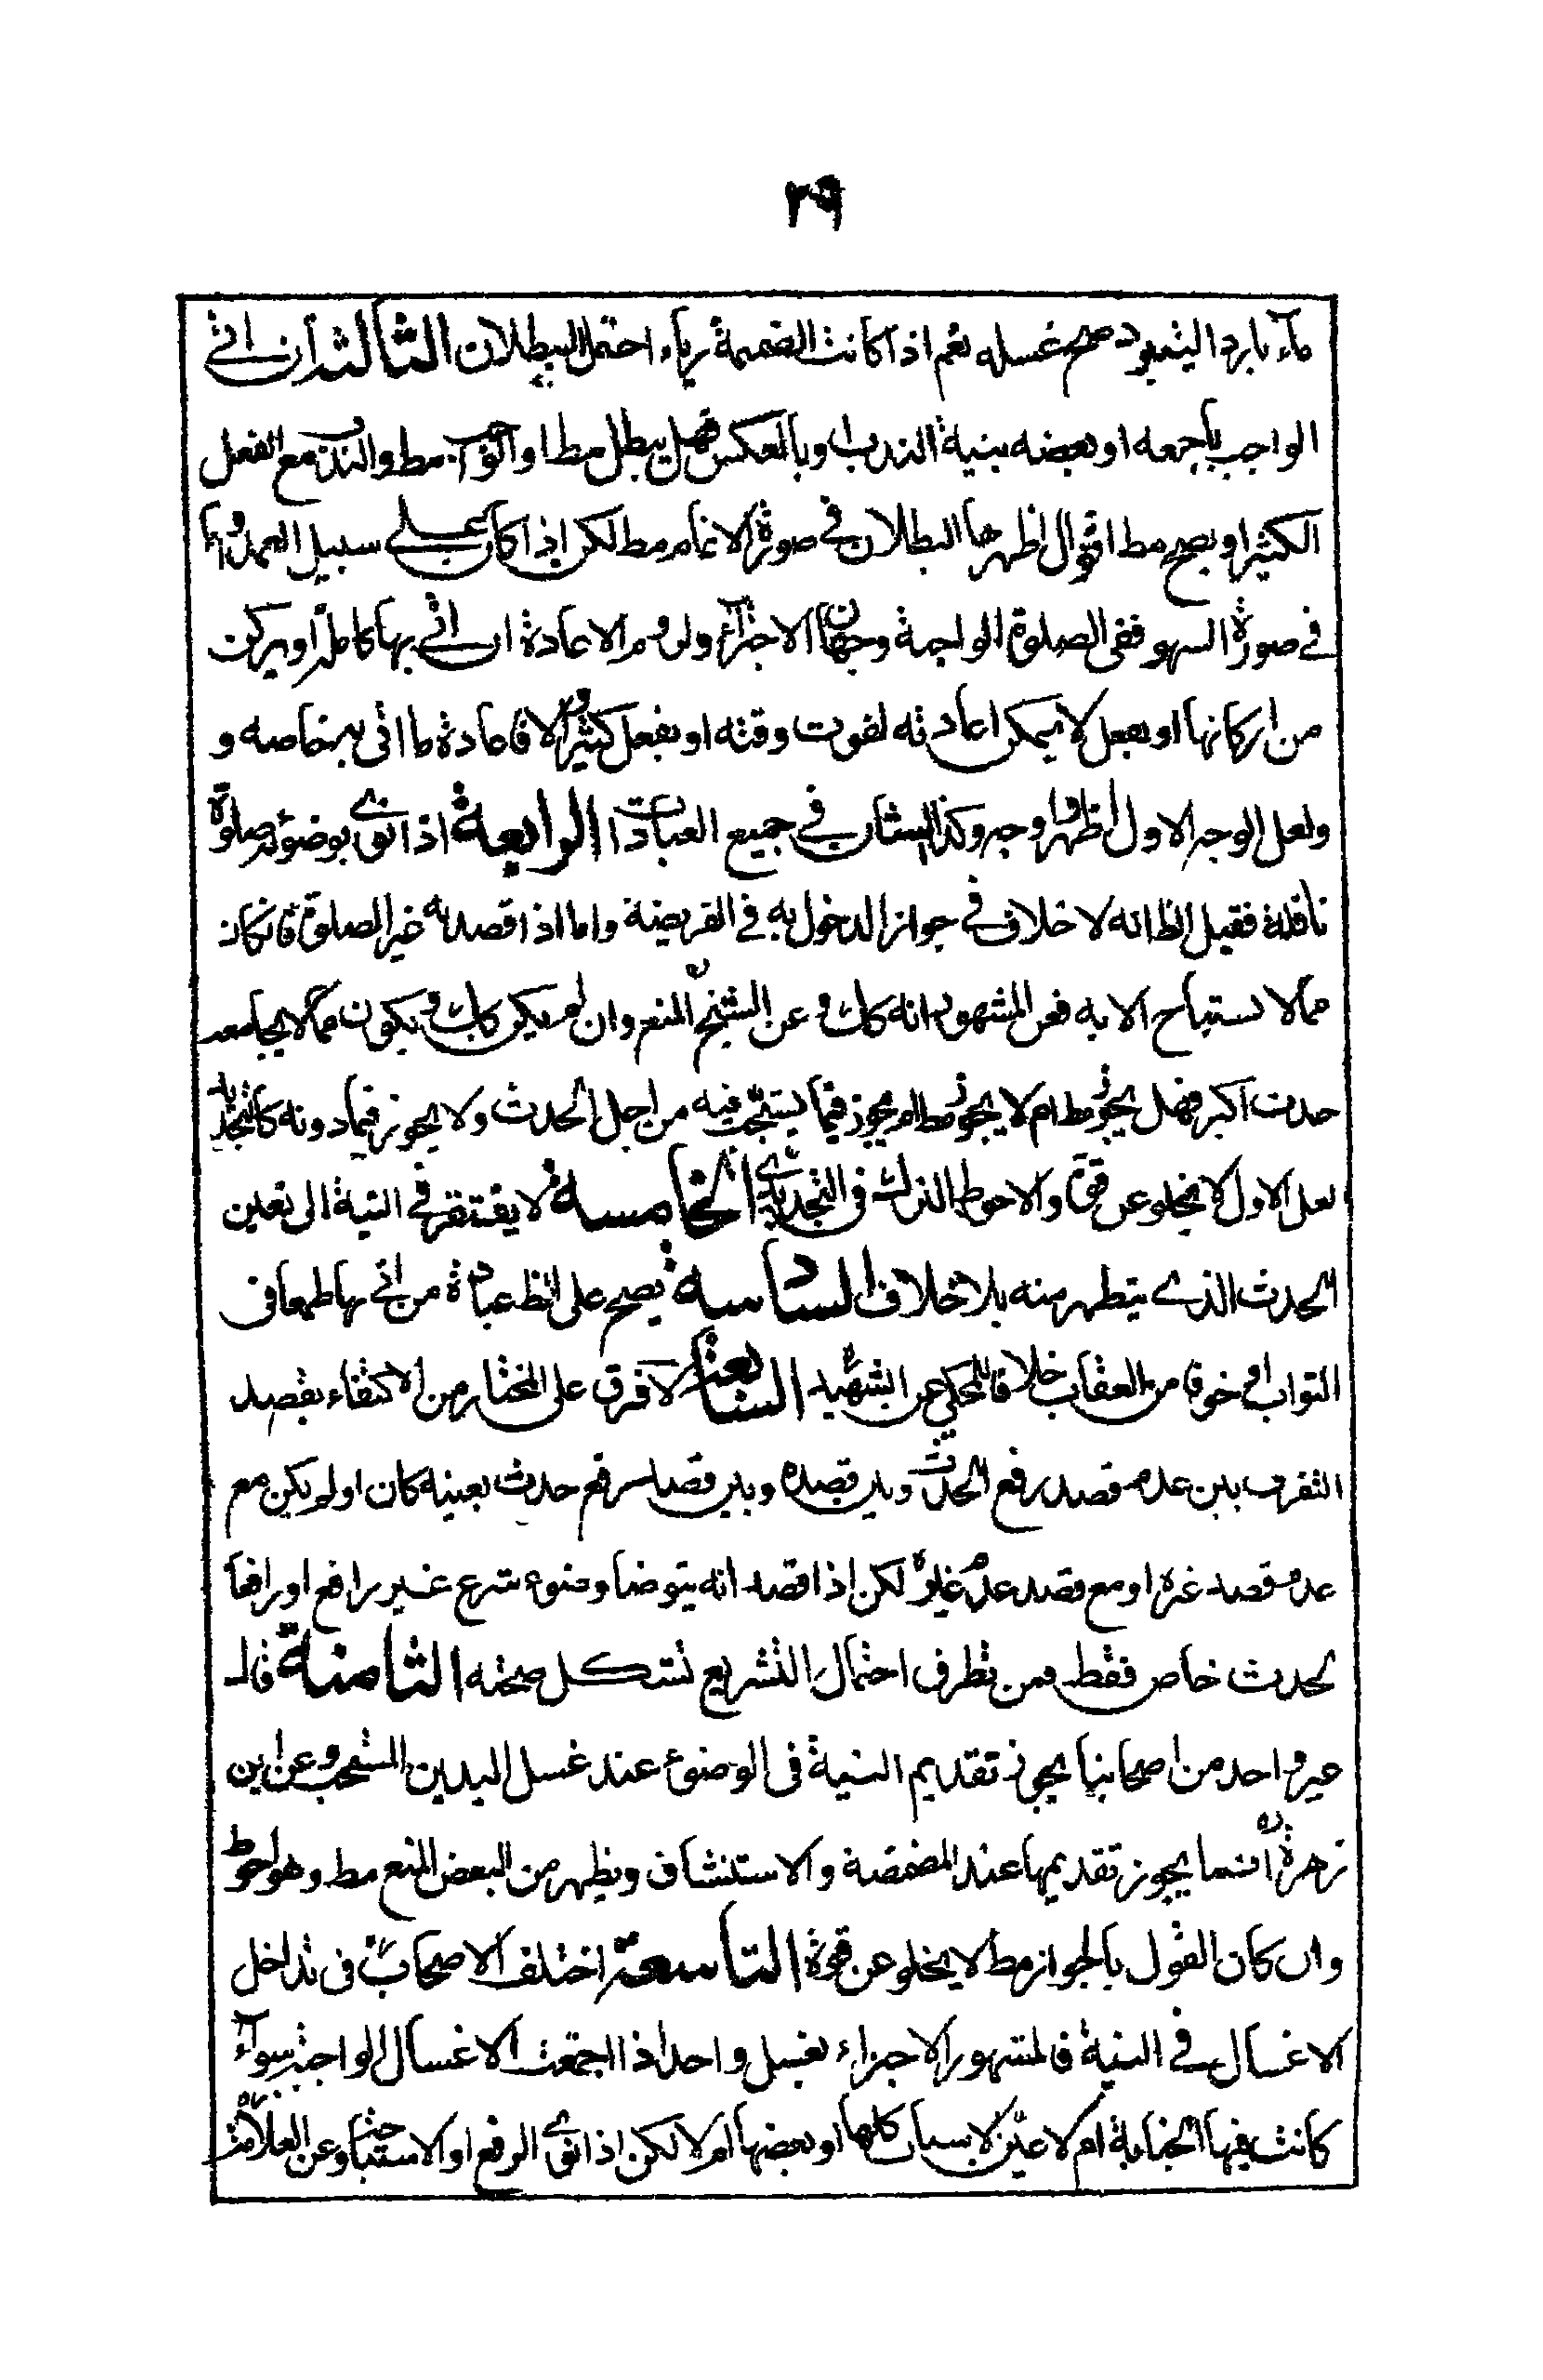 ٢٩
ماء بارد اليتبرد صح غسله نعم اذا كانت الضميمة رياء احتمل البطلان الثالثة ان اتى
الواجب باجمعه او بعضه بنية الندب او بالعكس فهل يبطل مط او الوجوب مط والندب مع الفعل
الكثير او يصح مط اقوال اظهرها البطلان في صورة الاتمام مط لكن اذا كان على سبيل العمد واما
في صورة السهو ففي الصلوة الواجبة وجهان الاجزاء ولزوم الاعادة ان اتى بها كاملة او بركن
من اركانها او بفعل لا يمكن اعادته لفوت وقته او بفعل كثير والا فاعادة ما اتى به خاصه و
ولعل الوجه الاول اظهر واوجه وكذا الشان في جميع العبادات الرابعة اذا نوى بوضوئه صلوة
نافلة فقيل الظ انه لا خلاف في جواز الدخول به في الفريضة واما اذا قصد به غير الصلوة فان كان
مما لا يستباح الا به فعن المشهور انه كك وعن الشيخ المنع وان لم يكن كك ويكون مما لا يجامعه
حدث اكبر فهل يجوز مط ام لا يجوز مط ام يجوز فيما يستحب فيه من اجل الحدث ولا يجوز فيما دونه كالتجديد
لعل الاول لا يخلو عن قوة والاحوط الترك في التجديدي الخامسة لا يفتقر في النية الى تعيين
الحدث الذي يتطهر منه بلا خلاف السادسة يصح على الظ عبادة من اتى بها طمعا في
الثواب او خوفا من العقاب خلافا للمحكي عن الشهيد السابعة لا فرق على المختار من الاكتفاء بقصد
التقرب بين عدم قصد رفع الحدث وبين قصده وبين قصد رفع حدث بعينه كان او لم يكن مع
عدم قصد غيره او مع قصد عدم غيره لكن اذا قصد انه يتوضا وضوء شرع غير رافع او رافعا
لحدث خاص فقط فمن تطرق احتمال التشريع تشكل صحته الثامنة قال
غير واحد من اصحابنا يجوز تقديم النية في الوضوء عند غسل اليدين المستحب وعن ابن
زهرة انما يجوز تقديمها عند المضمضة والاستنشاق ويظهر من البعض المنع مط وهو احوط
وان كان القول بالجواز مط لا يخلو عن قوة التاسعة اختلف الاصحاب في تداخل
الاغسال في النية فالمشهور الاجزاء بغسل واحد اذا اجتمعت الاغسال الواجبة سواء
كانت فيها الجنابة ام لا عين الاسباب كلها او بعضها ام لا لكن اذا نوى الرفع او الاستباحة وعن العلامة